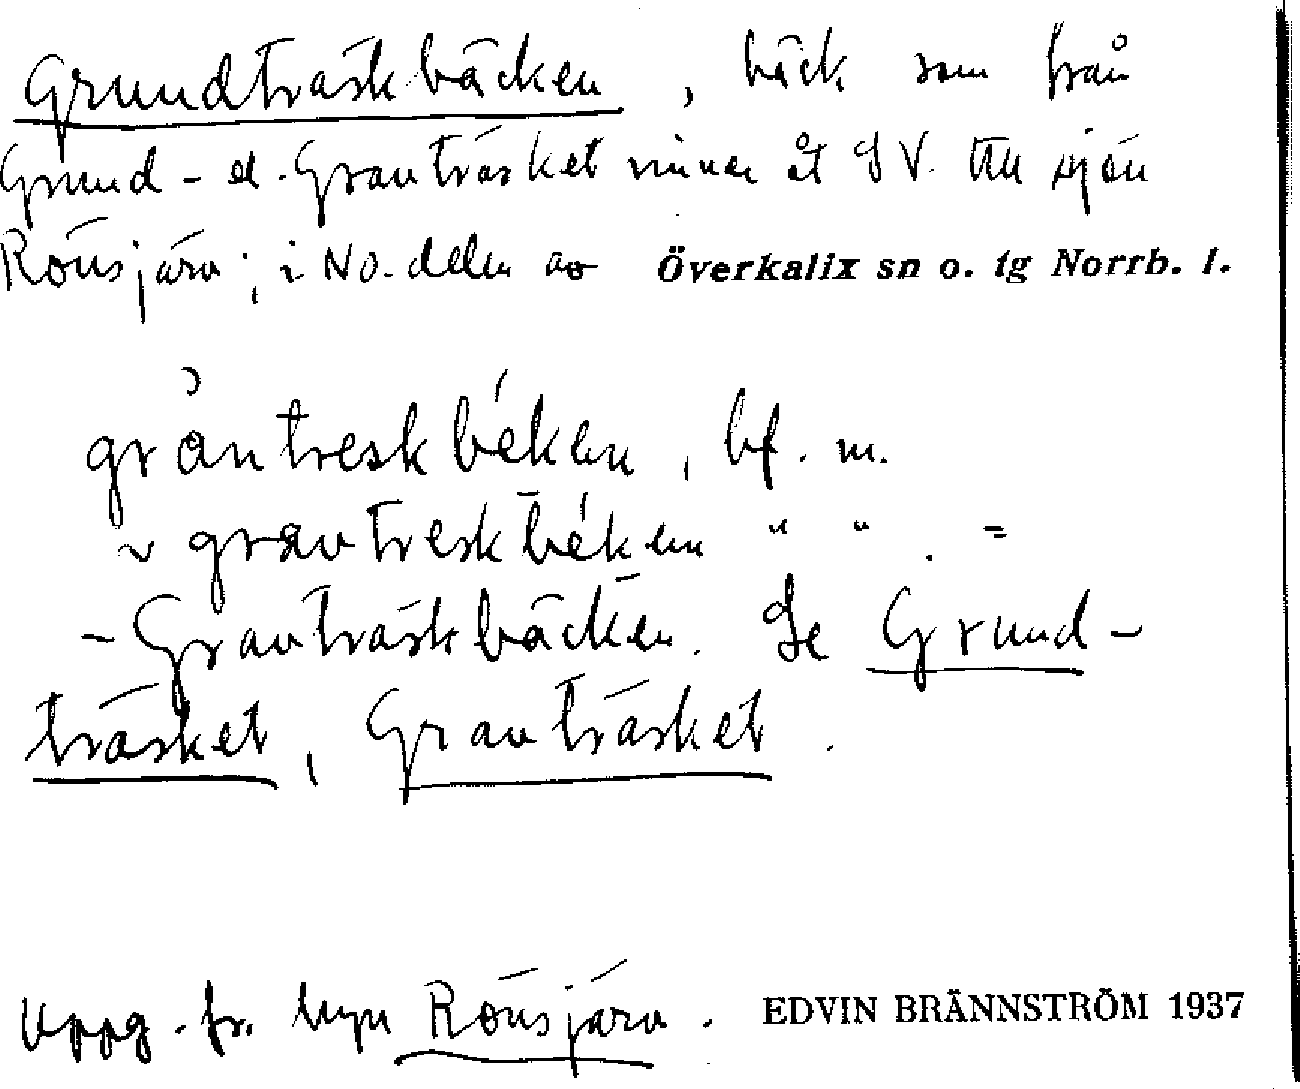 Grundträskbäcken, bäck som från
Grund- el. Gravträsket rinner åt SV. till sjön
Rönsjärv; i NO. delen av Överkalix sn o. tg Norrb. l.
gråntreskbéken, bf. m.
~ gravtreskbéken " " . =
- Gravträskbäcken. Se Grund-
träsket, Gravträsket.
Uppg. fr. byn Rönsjärv. EDVIN BRÄNNSTRÖM 1937